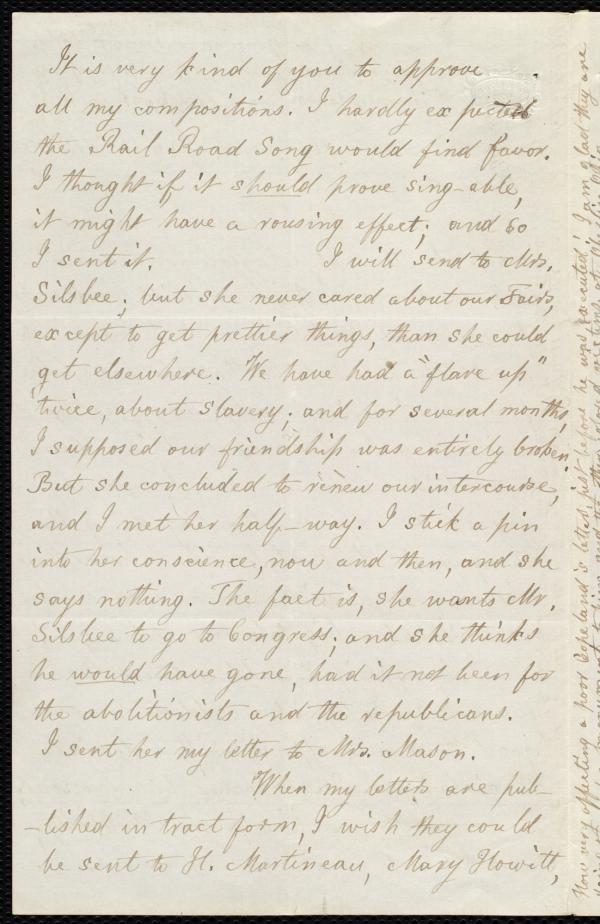 It is very kind of you to approve
all my compositions. I hardly expected
the Rail Road Song would find favor.
I thought if it should prove sing-able,
it might have a rousing effect; and so
I sent it. I will send to Mrs.
Silsbee; but she never cared about our Fairs,
except to get prettier things, than she could
get elsewhere. We have had a "flare up"
twice, about slavery; and for several months,
I supposed our friendship was entirely broken.
But she concluded to renew our intercourse,
and I met her half-way. I stick a pin
into her conscience, now and then, and she
says nothing. The fact is, she wants Mr.
Silsbee to go to Congress; and she thinks
he would have gone, had it not been for
the abolitionists and the republicans.
I sent her my letter to Mrs. Mason.
When my letters are pub-
-lished in tract form, I wish they could
be sent to H. Martineau, Mary Howitt,
How very affecting a poor Copeland's letter, just before he was executed! I am glad they are